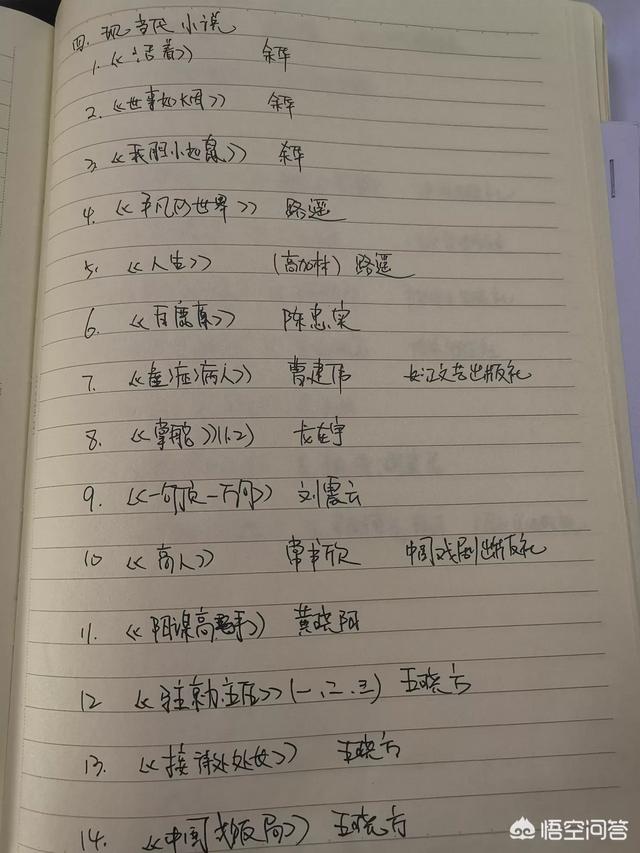 四、现当代小说
1.《活着》 余华
2.《世事如烟》 余华
3.《我胆小如鼠》 余华
4.《平凡的世界》 路遥
5.《人生》 (高加林) 路遥
6.《白鹿原》 陈忠实
7.《重症病人》 曹建伟 长江文艺出版社
8.《掌舵》(1.2) 龙在宇
9.《一句顶一万句》 刘震云
10《商人》 常书欣 中国戏剧出版社
11.《阴谋高手》 黄晓阳
12《驻京办主任》(一、二、三) 王晓方
13.《接待处处长》 王晓方
14.《中国式饭局》 王晓方
悟空问答